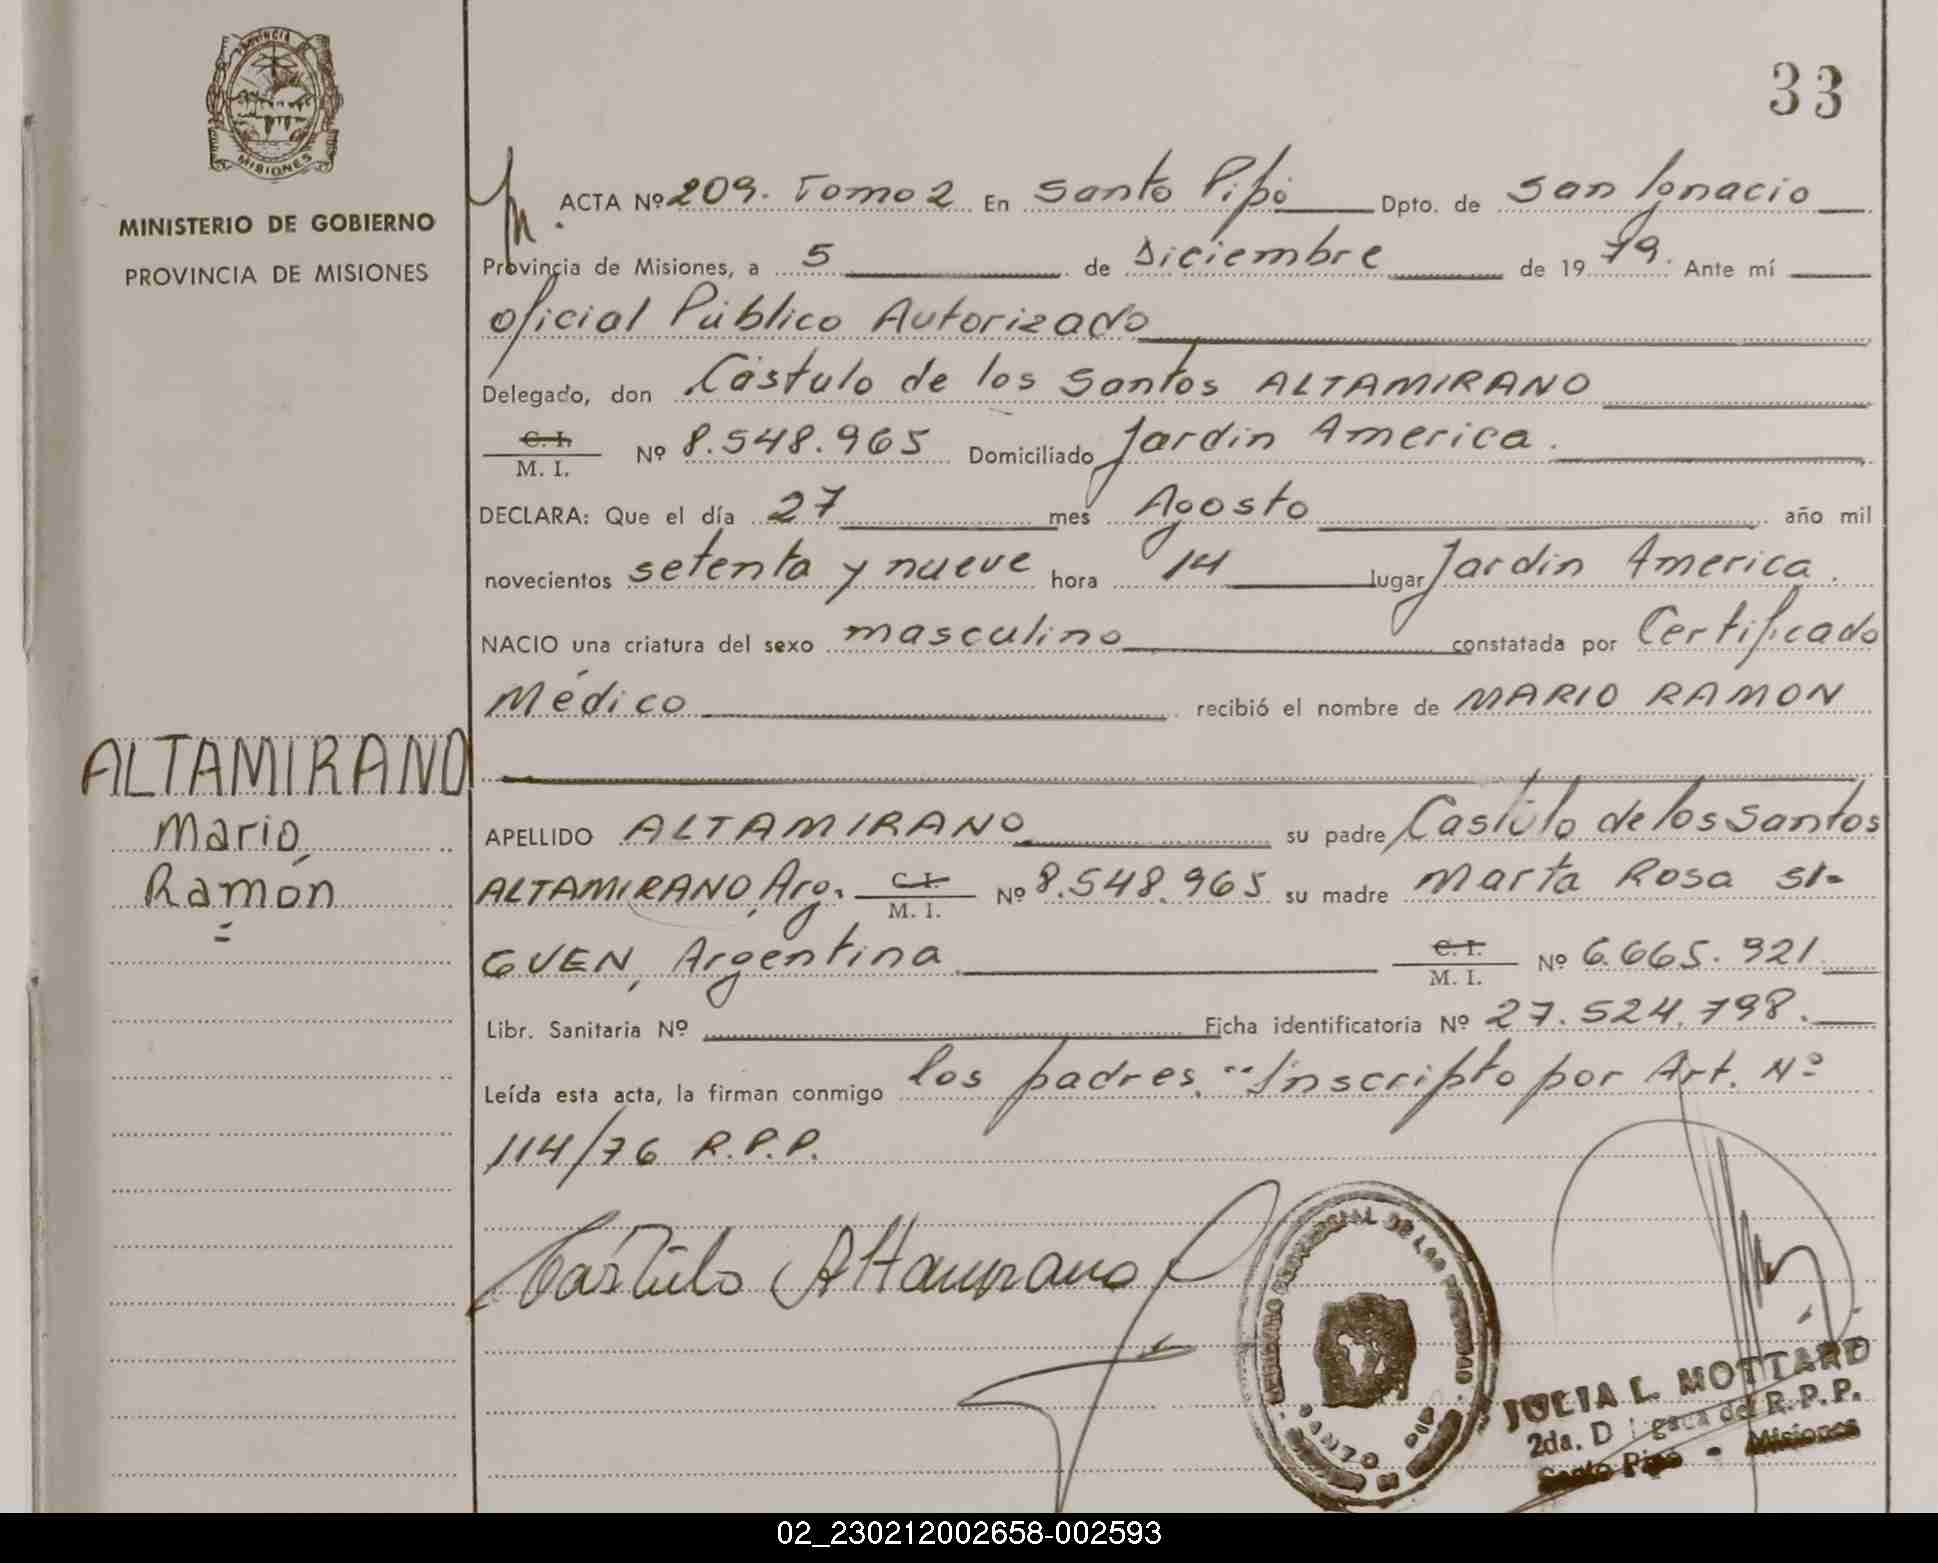 PROVINCIA DE
MISIONES
MINISTERIO DE GOBIERNO
PROVINCIA DE MISIONES
33
ACTA Nº 209. Tomo 2 En Santo Pipó Dpto. de San Ignacio
Provincia de Misiones, a 5 de Diciembre de 19 79. Ante mí
oficial Público Autorizado
Delegado, don Cástulo de los Santos ALTAMIRANO
C. I.
M. I. Nº 8.548.965 Domiciliado Jardin America.
DECLARA: Que el día 27 mes Agosto año mil
novecientos setenta y nueve hora 14 lugar Jardin America.
NACIO una criatura del sexo masculino constatada por Certificado
Médico recibió el nombre de MARIO RAMON
ALTAMIRANO
Mario
Ramón
=
APELLIDO ALTAMIRANO su padre Castulo de los Santos
ALTAMIRANO, Arg. C. I. M. I. Nº 8.548.965 su madre Marta Rosa SI-
GUEN, Argentina C. I. M. I. Nº 6.665.921
Libr. Sanitaria Nº Ficha identificatoria Nº 27.524.798.
Leída esta acta, la firman conmigo los padres. "Inscripto por Art. Nº
114/76 R.P.P.
Cástulo Altamirano
JULIA L. MOTTARD
2da. D gada del R.P.P.
Santo Pipo - Misiones
02_230212002658-002593